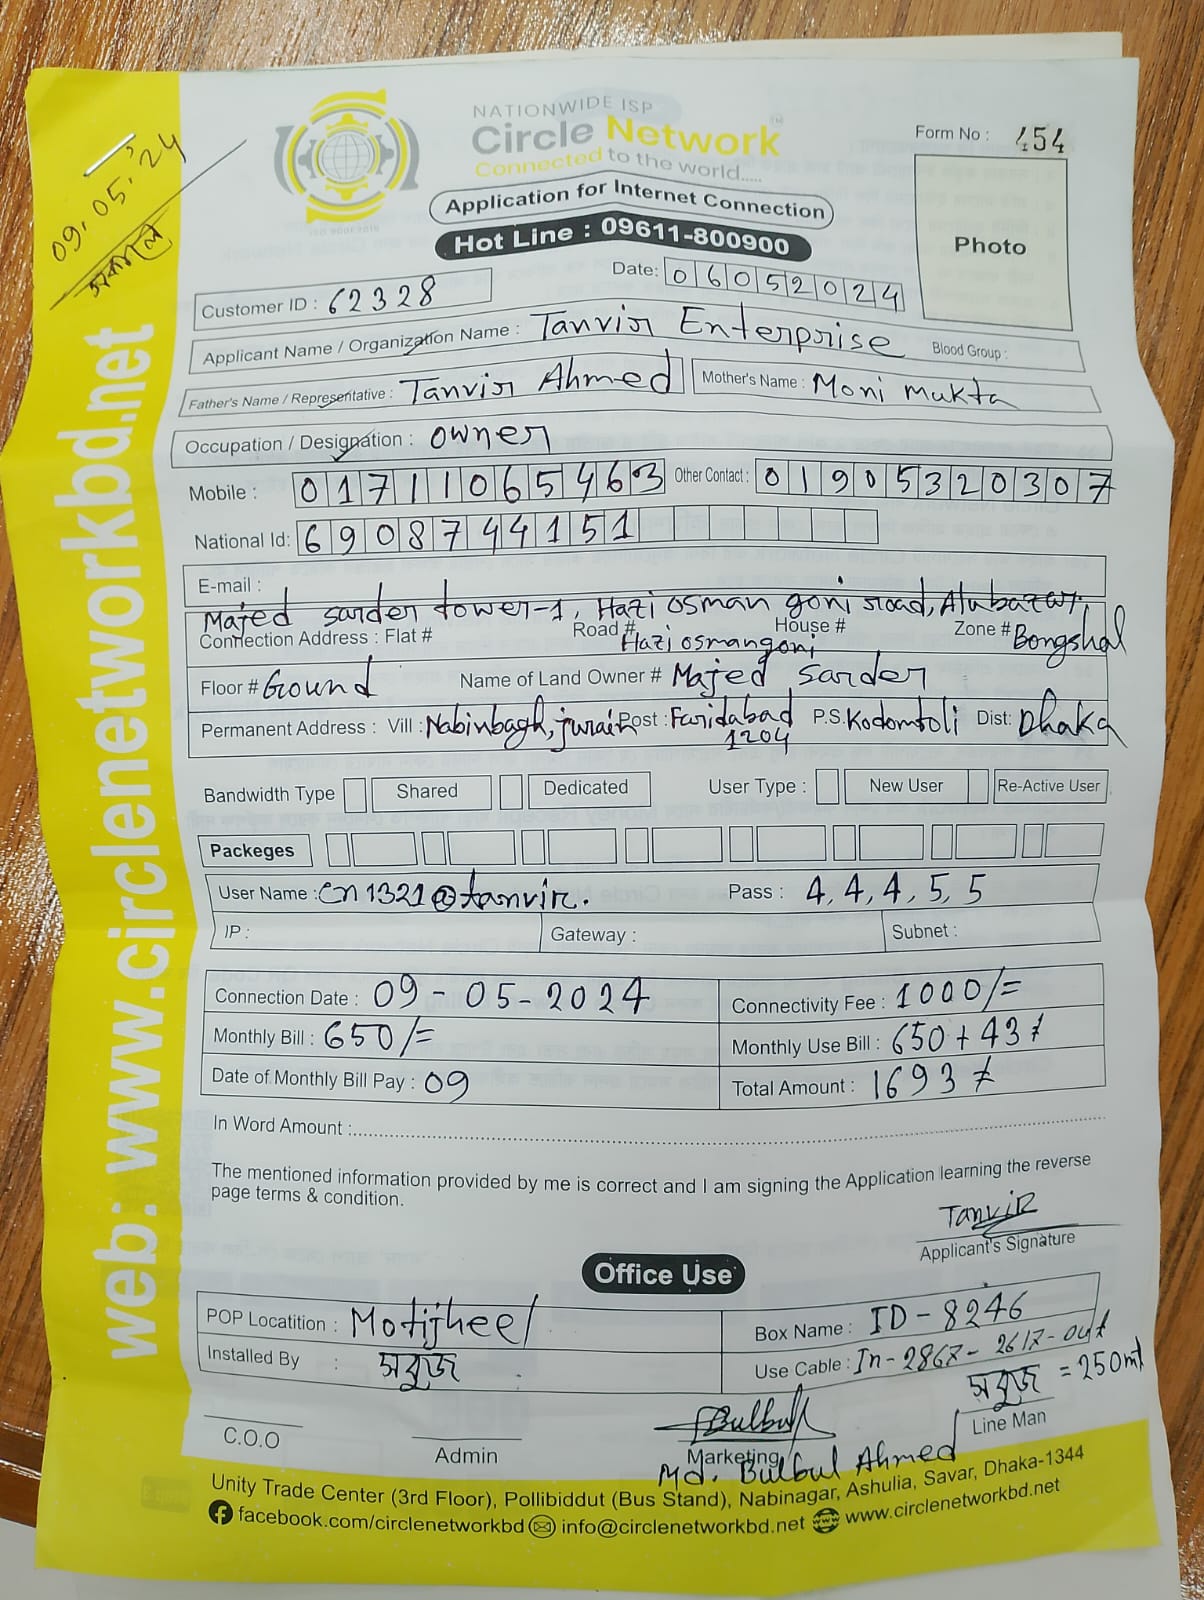 NATIONWIDE ISP
Circle Network™
Connected to the world.....
Form No : 454
09.05.24
সকাল
Application for Internet Connection
Hot Line : 09611-800900
Photo
Date: 06052024
Customer ID : 62328
Applicant Name / Organization Name : Tanvir Enterprise Blood Group :
Father's Name / Representative : Tanvir Ahmed Mother's Name : Moni Mukta
Occupation / Designation : Owner
Mobile : 01711065463 Other Contact : 01905320307
National Id: 6908744151
E-mail :
Majed sarder tower-1, Hazi osman goni road, Alubazar,
Connection Address : Flat # Road # Hazi osmangoni House # Zone # Bongshal
Floor # Ground Name of Land Owner # Majed Sarder
Permanent Address : Vill : Nabinbagh, jurain Post : Faridabad 1204 P.S. Kodomtoli Dist: Dhaka
Bandwidth Type Shared Dedicated User Type : New User Re-Active User
Packeges
User Name : cn1321@tanvir. Pass : 4,4,4,5,5
IP : Gateway : Subnet :
Connection Date : 09-05-2024 Connectivity Fee : 1000/=
Monthly Bill : 650/= Monthly Use Bill : 650+43/=
Date of Monthly Bill Pay : 09 Total Amount : 1693/=
In Word Amount :
The mentioned information provided by me is correct and I am signing the Application learning the reverse
page terms & condition.
Tanvir
Applicant's Signature
Office Use
POP Locatition : Motijheel Box Name : ID-8246
Installed By : সবুজ Use Cable : In-2867- 2617-out
সবুজ = 250mt
Bulbul
C.O.O Admin Marketing Line Man
Md. Bulbul Ahmed
Unity Trade Center (3rd Floor), Pollibiddut (Bus Stand), Nabinagar, Ashulia, Savar, Dhaka-1344
facebook.com/circlenetworkbd info@circlenetworkbd.net www.circlenetworkbd.net
web: www.circlenetworkbd.net